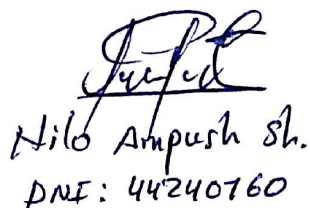 Nilo Ampush Sh.
DNI: 44240760